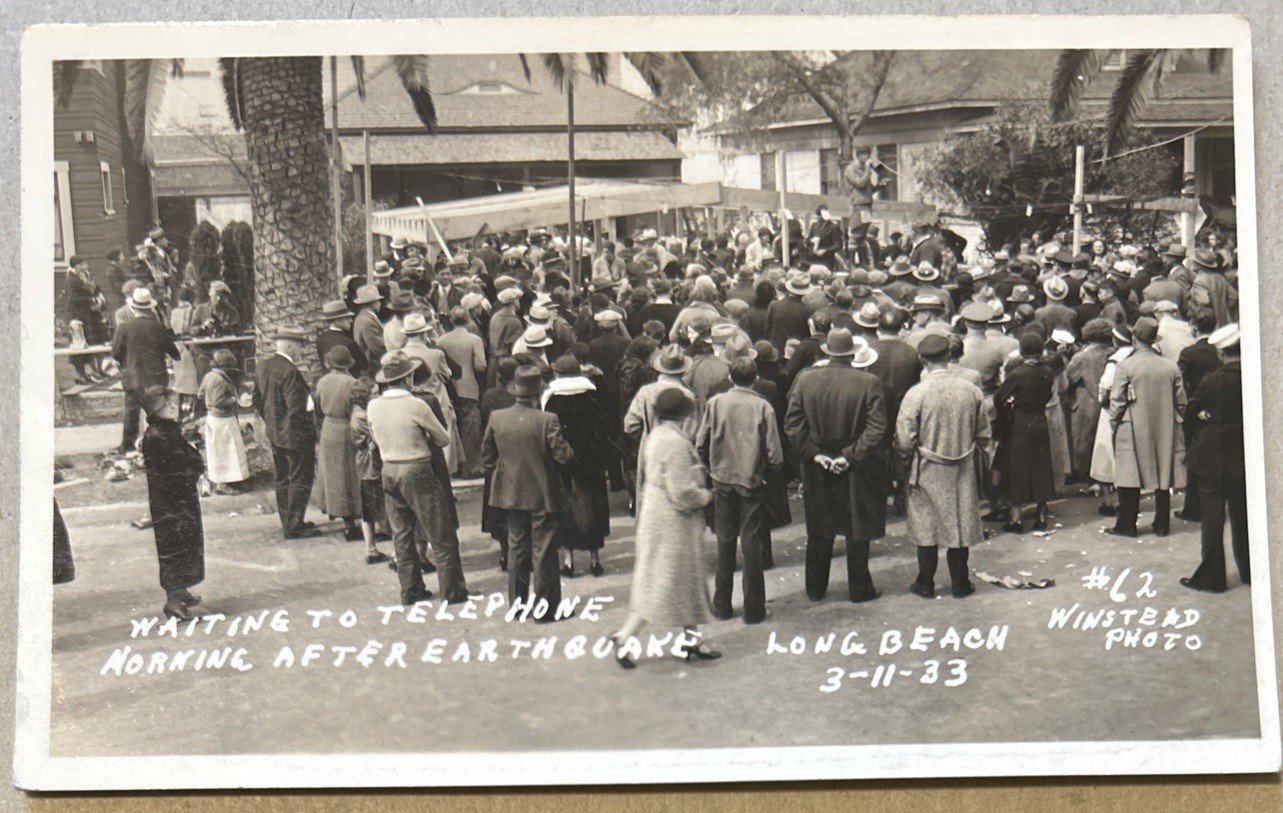 WAITING TO TELEPHONE
MORNING AFTER EARTHQUAKE
LONG BEACH
3-11-33
#62
WINSTEAD
PHOTO